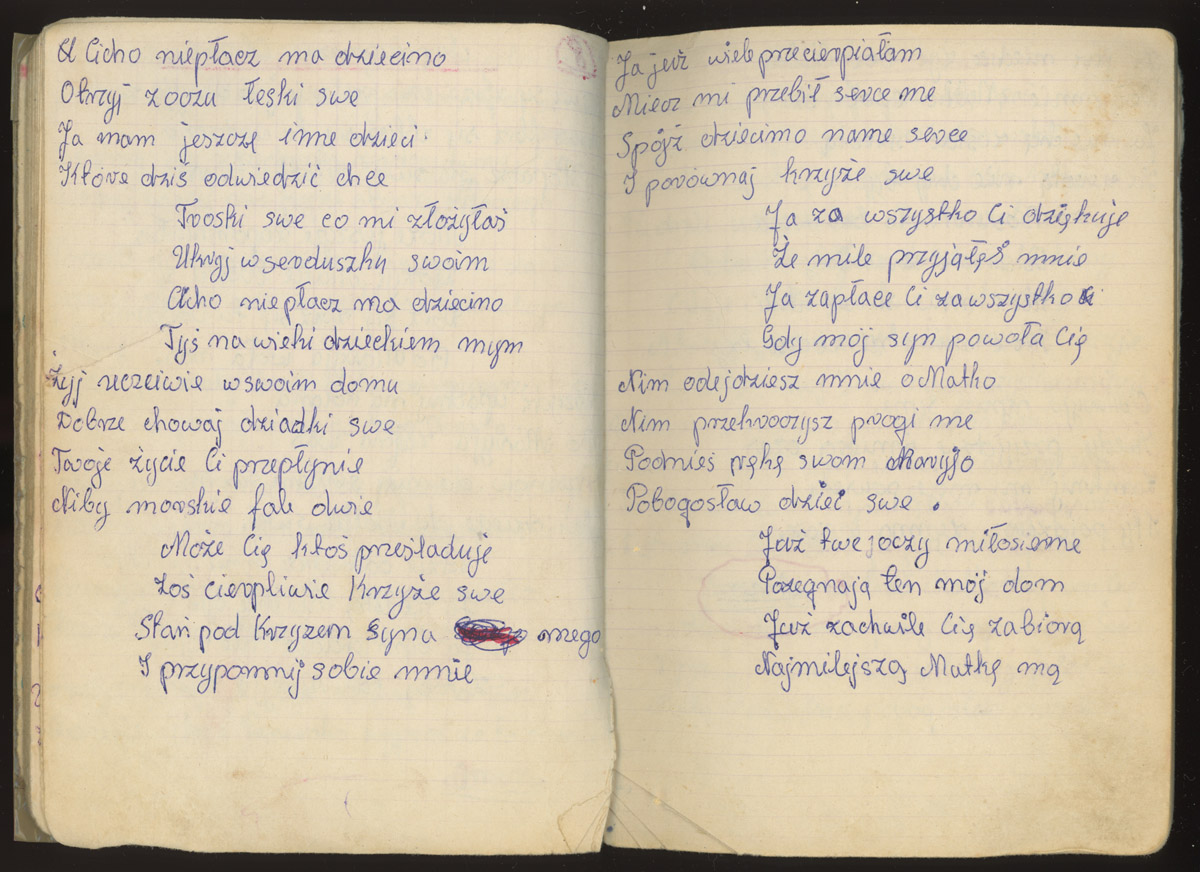 Cicho niepłacz ma dziecino
Otrzyj z oczu łeski swe
Ja mam jeszczę inne dzieci
Które dziś odwiedzić chce
Troski swe co mi złożyłaś
Ukryj w serduszku swoim
Cicho niepłacz ma dziecino
Tyś na wieki dzieckiem mym
Żyj uczciwie wswoim domu
Dobrze chowaj dziadki swe
Twoje życie Ci przepłynie
Niby morskie fale dwie
Może Cię ktoś prześladuje
Zoś cierpliwie Krzyże swe
Stań pod Krzyzem Syna mego
I przypomnij sobie mnie
8
Ja już wiele przecierpiałam
Miecz mi przebił serce me
Spójż dziecimo name serce
I porównaj krzyże swe
Ja za wszystko Ci dziękuje
Że mile przyjąłęś mnie
Ja zapłace Ci zawszystko
Gdy mój syn powoła Cię
Nim odejdziesz mnie o Matko
Nim przekroczysz progi me
Podnieś rękę swom Maryjo
Pobogosław dzieci swe .
Już twe joczy miłosierne
Pozegnają ten mój dom
Już zachwile Cię zabiorą
Najmilejszą Matkę mą